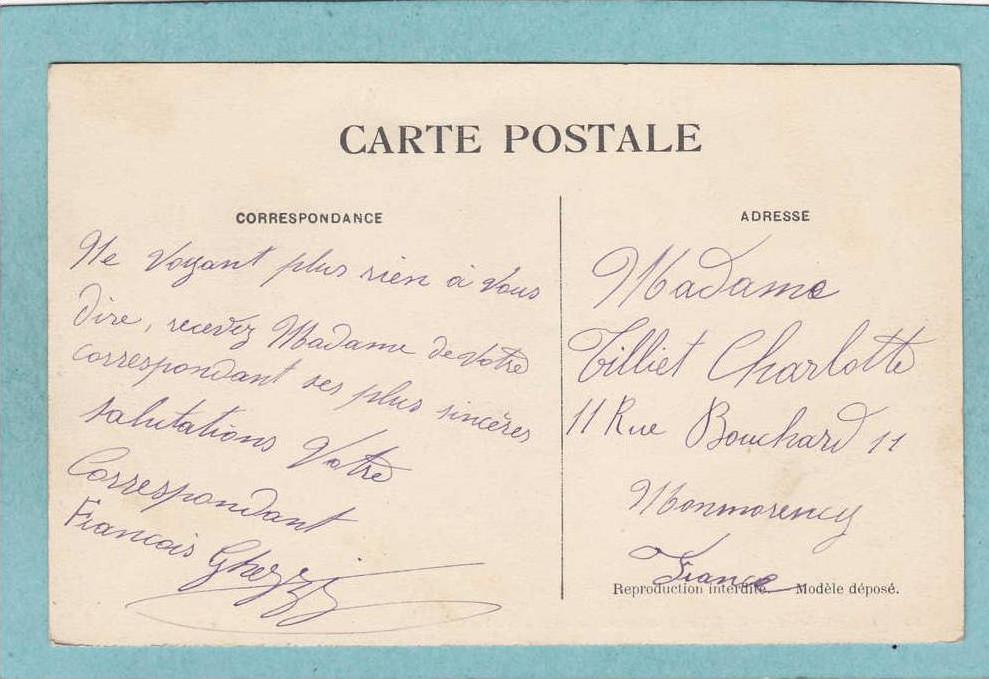 CARTE POSTALE
CORRESPONDANCE
Ne voyant plus rien à vous
dire, recevez Madame de votre
correspondant ses plus sincères
salutations Votre
Correspondant
Francois Ghezzi
ADRESSE
Madame
Tilliet Charlotte
11 Rue Bouchard 11
Monmorency
France
Reproduction interdite. Modèle déposé.